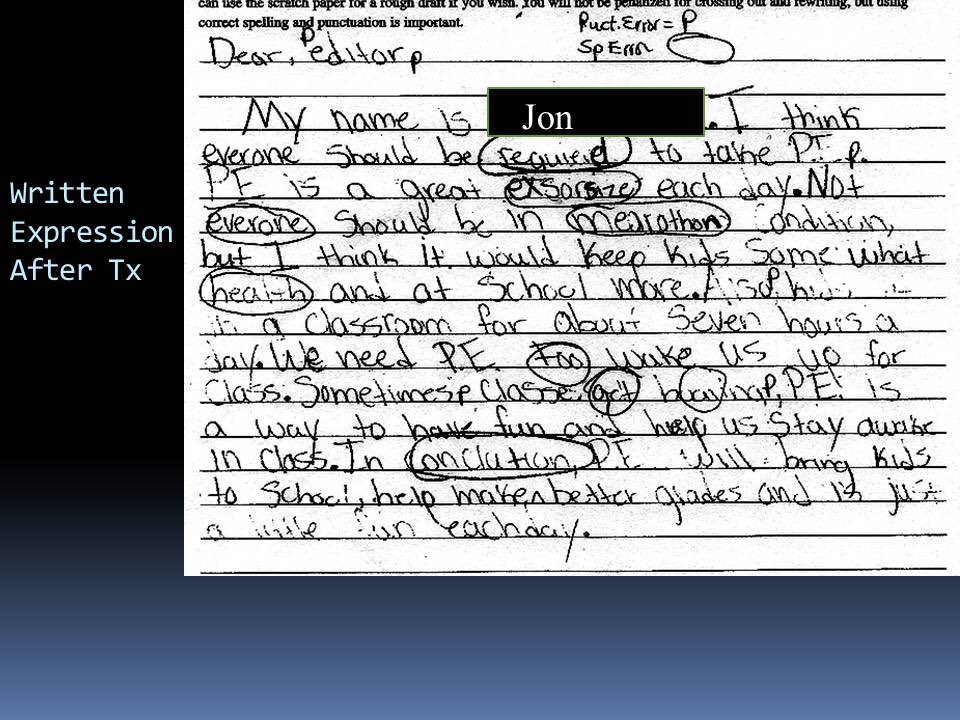 can use the scratch paper for a rough draft if you wish. You will not be penalized for crossing out and rewriting, but using
correct spelling and punctuation is important.
Puct. Error = P
Sp Error
Dear, P editor P
My name is Jon . I think
everone should be required to take P.E P.
P.E is a great exsorsize each day. Not
everone should be in marathon Condition,
but I think it would keep kids some what
health and at School more. Also P kids
in a classroom for about seven hours a
day. We need P.E. too wake us up for
Class. Sometimes P classes get P, P.E. is
a way to have fun and help us stay awake
in class. In Conclution, P.E will bring kids
to School, help make better grades and is just
a little fun each day.
Written
Expression
After Tx